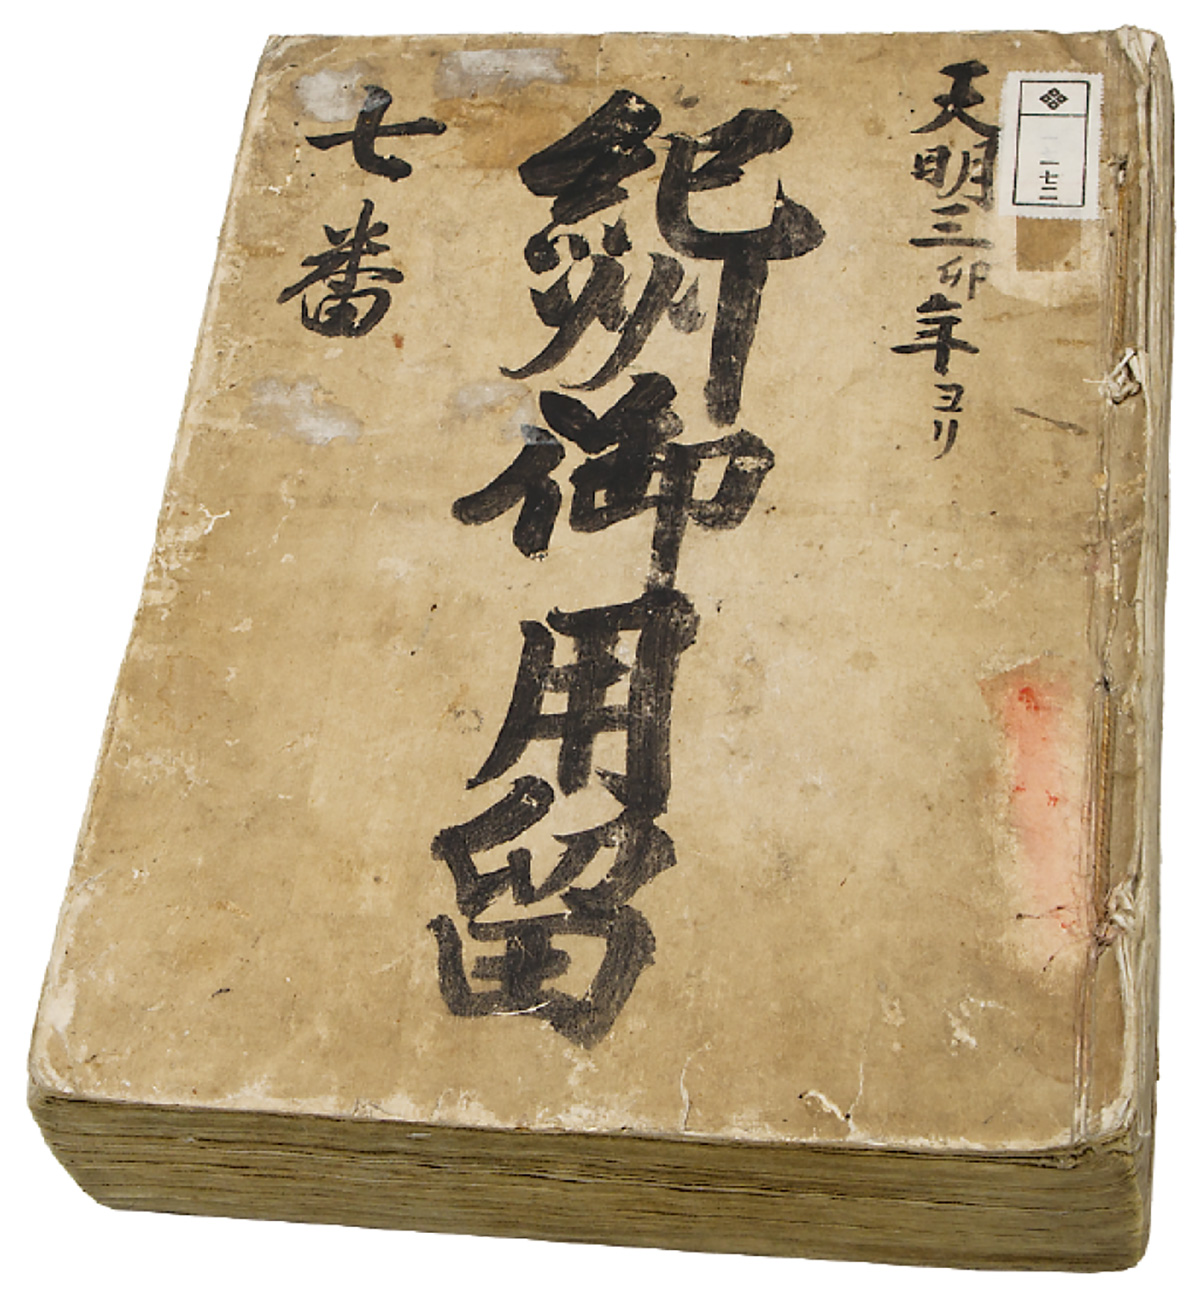 天明三卯年ヨリ
紀州御用留
七番
一七二